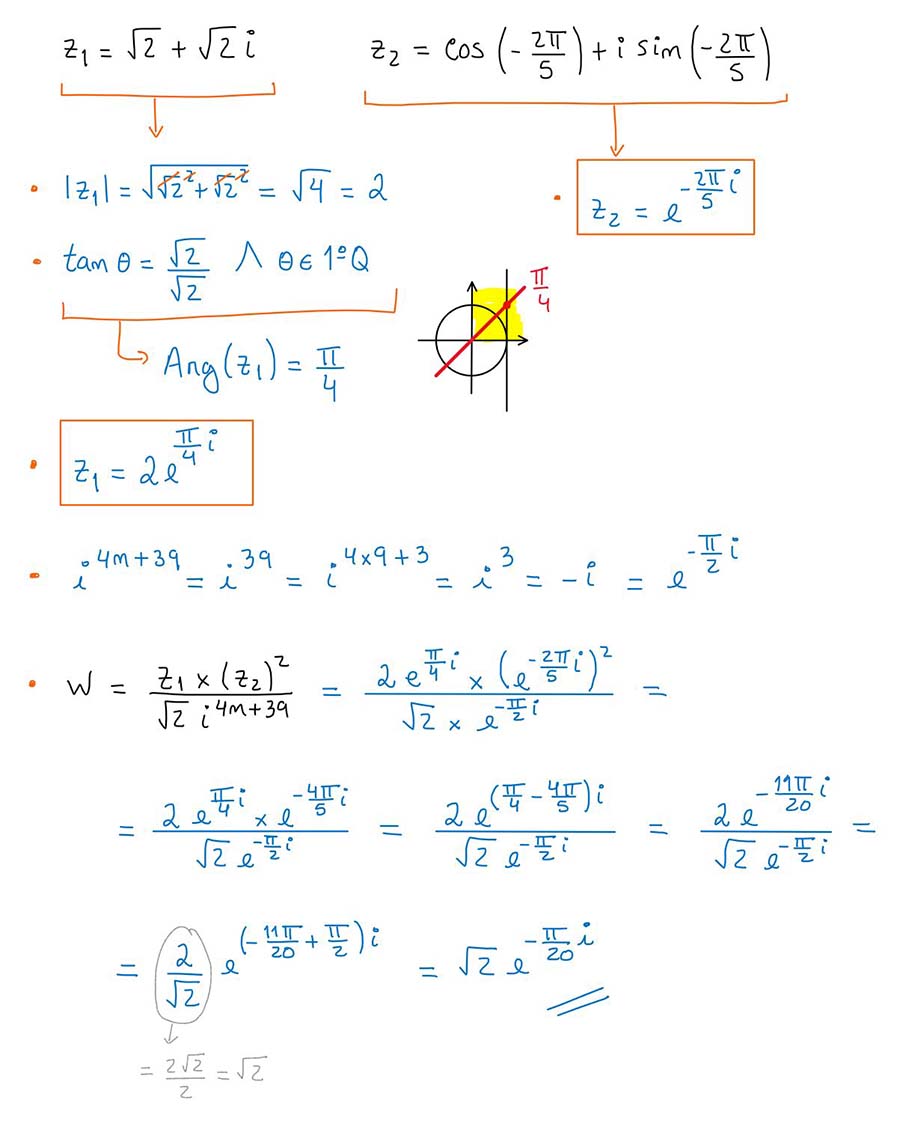 z₁ = √2 + √2 i    z₂ = cos (-2π/5) + i sin (-2π/5)
• |z₁| = √(√2² + √2²) = √4 = 2    • z₂ = e^(-2π/5 i)
• tan θ = √2/√2 ∧ θ ∈ 1ºQ
π/4
Arg(z₁) = π/4
• z₁ = 2e^(π/4 i)
• i^(4m+39) = i^39 = i^(4x9+3) = i^3 = -i = e^(-π/2 i)
• W = (z₁ x (z₂)²)/(√2 i^(4m+39)) = (2e^(π/4 i) x (e^(-2π/5 i))²)/(√2 x e^(-π/2 i)) =
= (2e^(π/4 i) x e^(-4π/5 i))/(√2 e^(-π/2 i)) = (2e^((π/4 - 4π/5)i))/(√2 e^(-π/2 i)) = (2e^(-11π/20 i))/(√2 e^(-π/2 i)) =
= 2/√2 e^((-11π/20 + π/2)i) = √2 e^(-π/20 i)
= 2√2/2 = √2